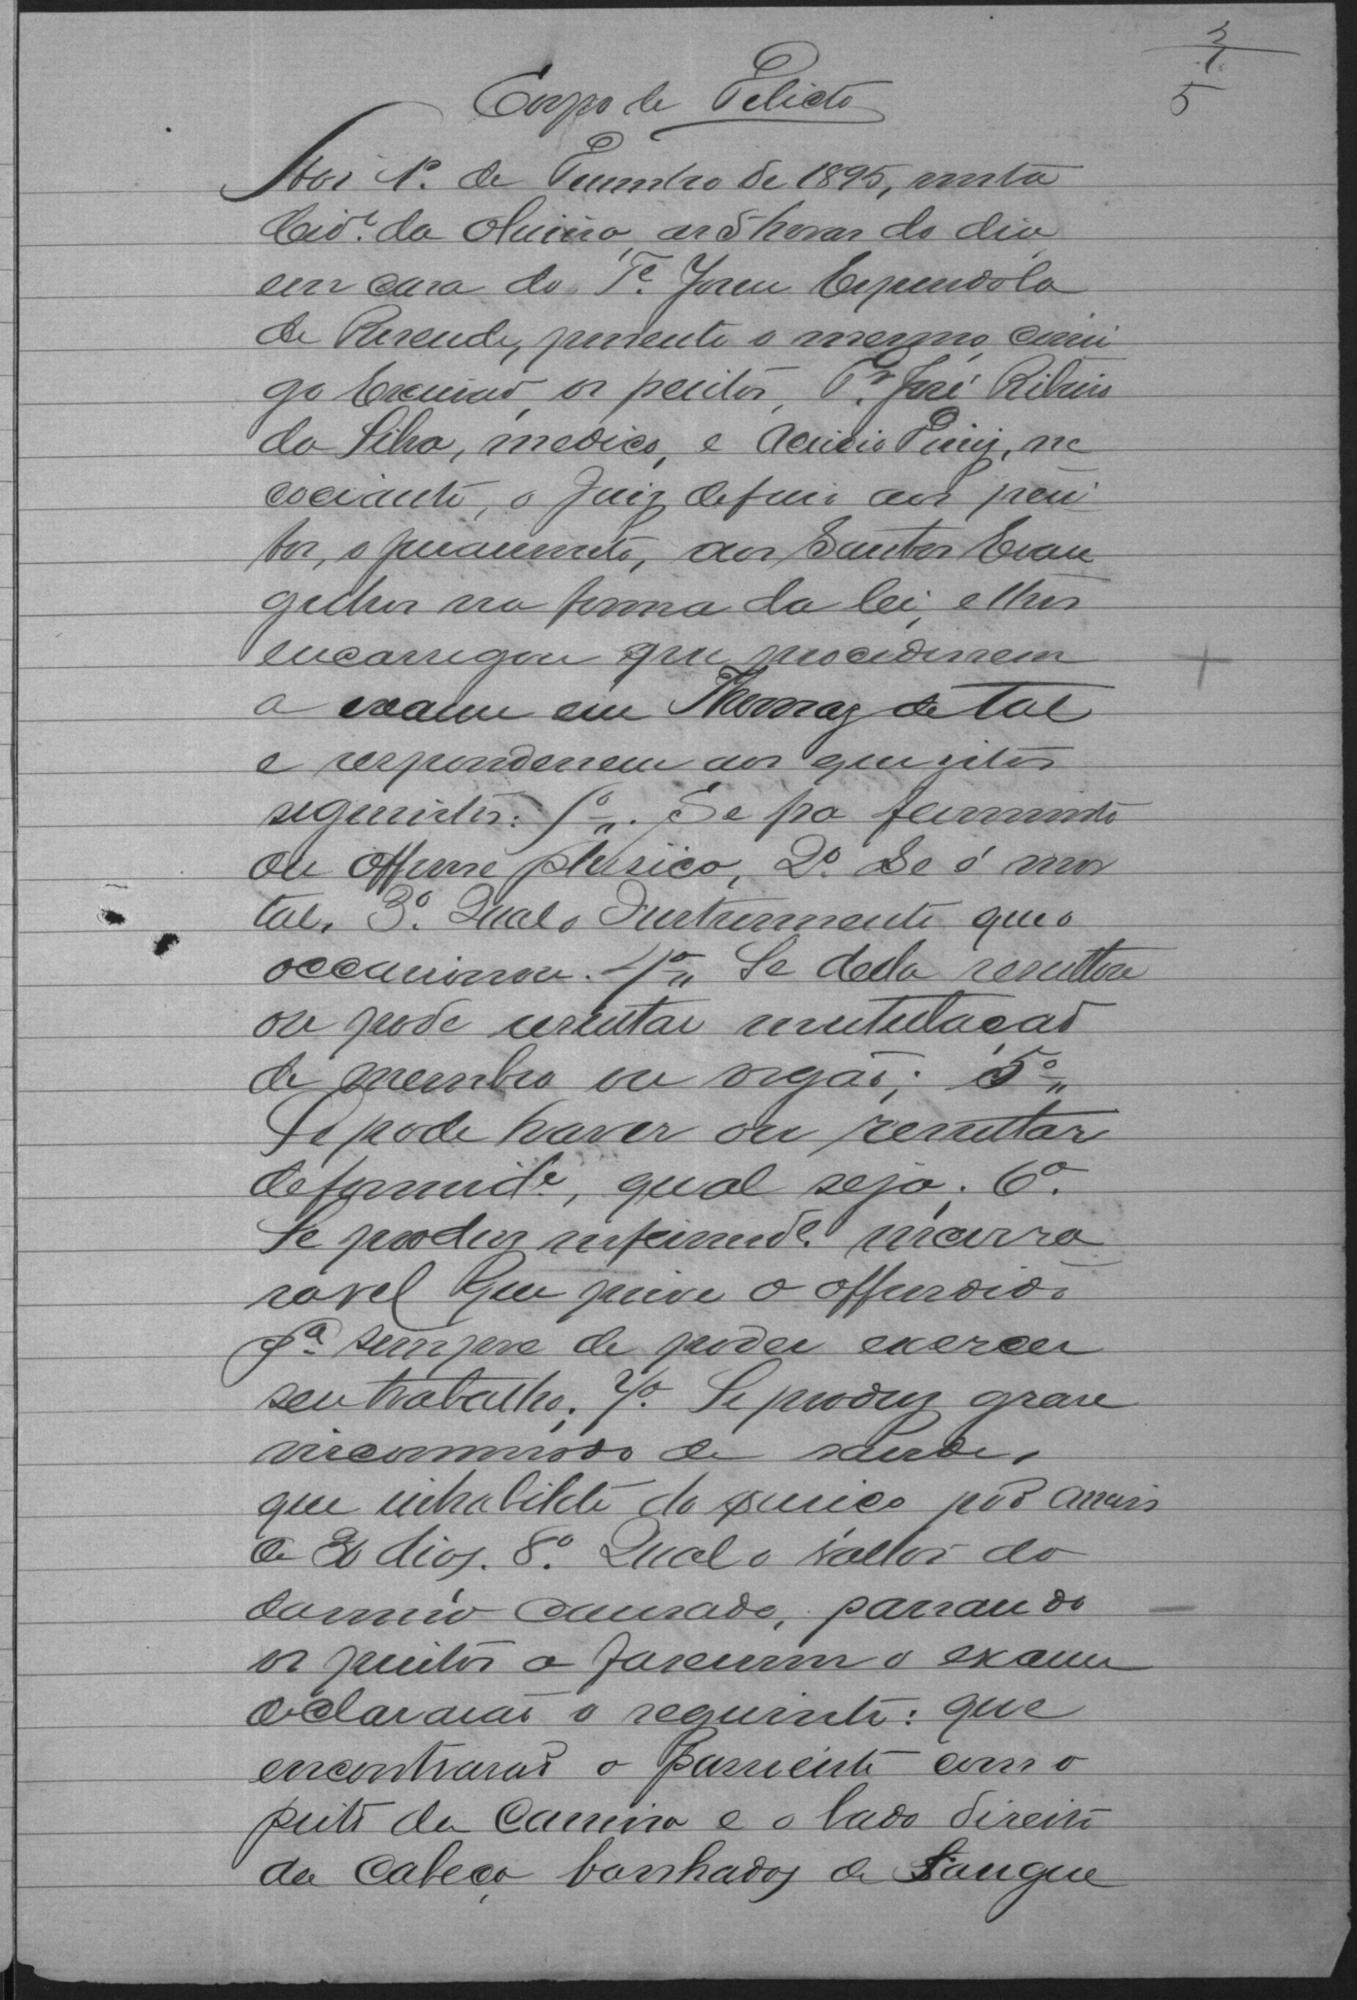 5
Corpo de Delicto
Aos 1º. de Dezembro de 1895, nesta
Cidᵉ. da Oliveira, as 5 horas do dia
em casa do Tᵉ. José Espendola
de Resende, presente o mesmo comi
go Escrivaõ, os peritos, Dʳ. José Ribeiro
da Silva, medico, e Acacio Diniz, ne
gociante, o Juiz defirio aos peri
tos, o juramento, aos Santos Evan
gelhos na forma da lei, e lhes
encarregou que procedessem
a exame em Thomaz de tal
e respondessem aos quezitos
seguintes: 1º. Se ha ferimento
ou offensa phisica, 2º. Se é mor
tal, 3º. Qual o Instrumento que o
occasionou. 4º Se della resultou
ou pode resultar mutulaçaõ
de membro ou orgaõ; 5º
Se pode haver ou resultar
deformidᵉ, qual seja. 6º.
Se produz enfermidᵉ. incurra
ravel que prive o offendido
pª. sempre de poder exercer
seu trabalho. 7º. Se produz grave
incommodo de saude,
que inhabilite do serviço por mais
de 30 dias. 8º. Qual o vallor do
damno causado, passando
os peritos a fazerem o exame
declararaõ o seguinte: que
encontraraõ o paciente com o
peito da Camisa e o lado direito
da Cabeça banhados de Sangue